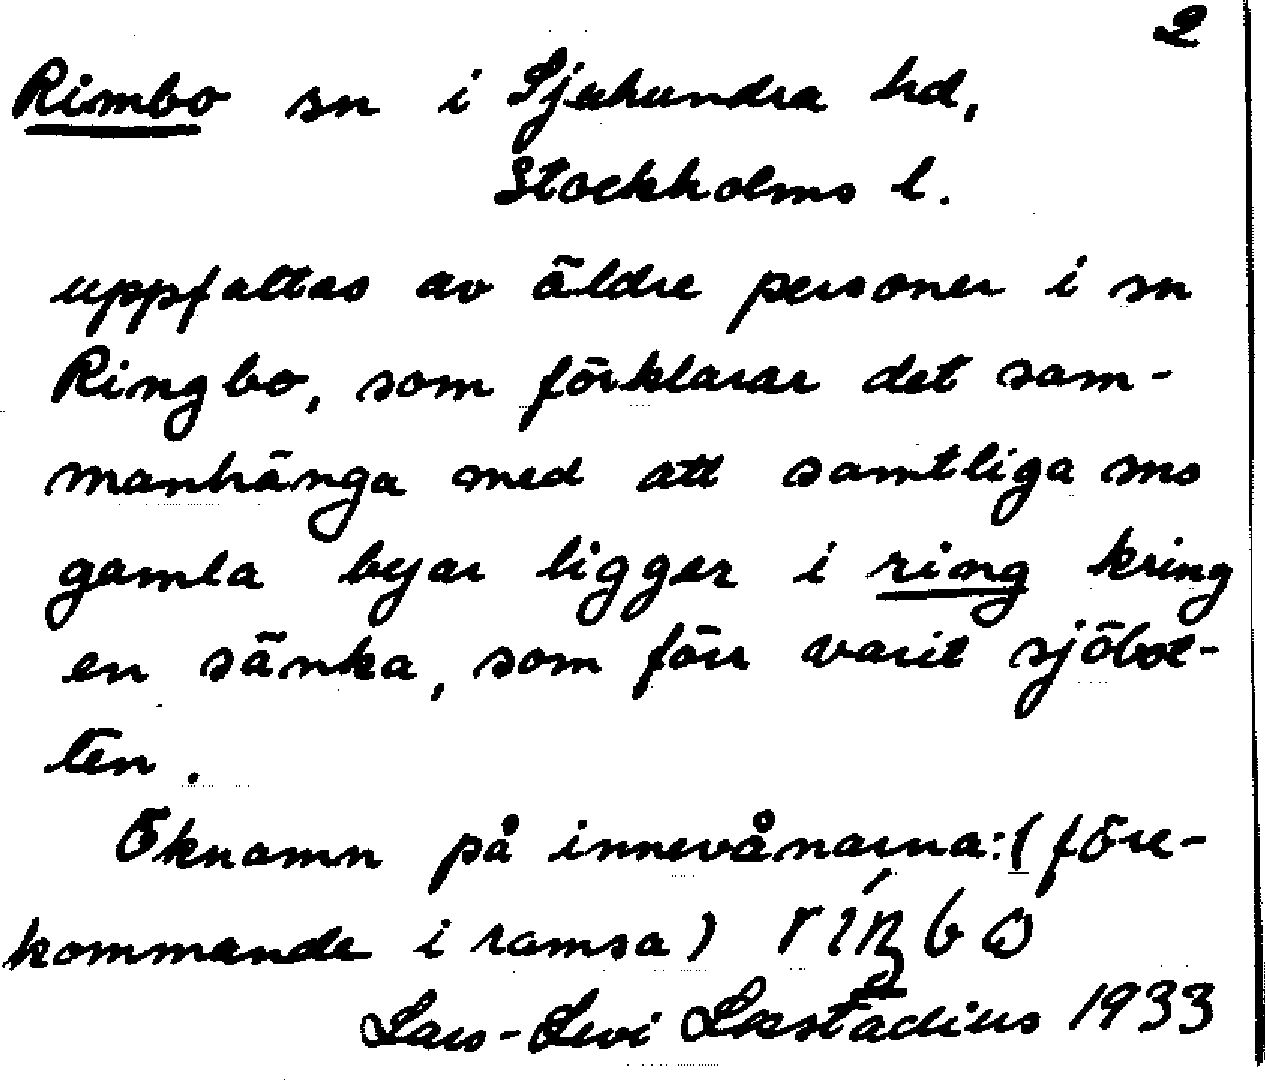 2
Rimbo sn i Sjuhundra hd,
Stockholms l.
uppfattas av äldre personer i sn
Ringbo, som förklarar det sam-
manhänga med att samtliga sns
gamla byar ligger i ring kring
en sänka, som förr varit sjöbot-
ten.
Öknamn på innevånarna: (före-
kommande i ramsa)
Lars-Levi Læstadius 1933